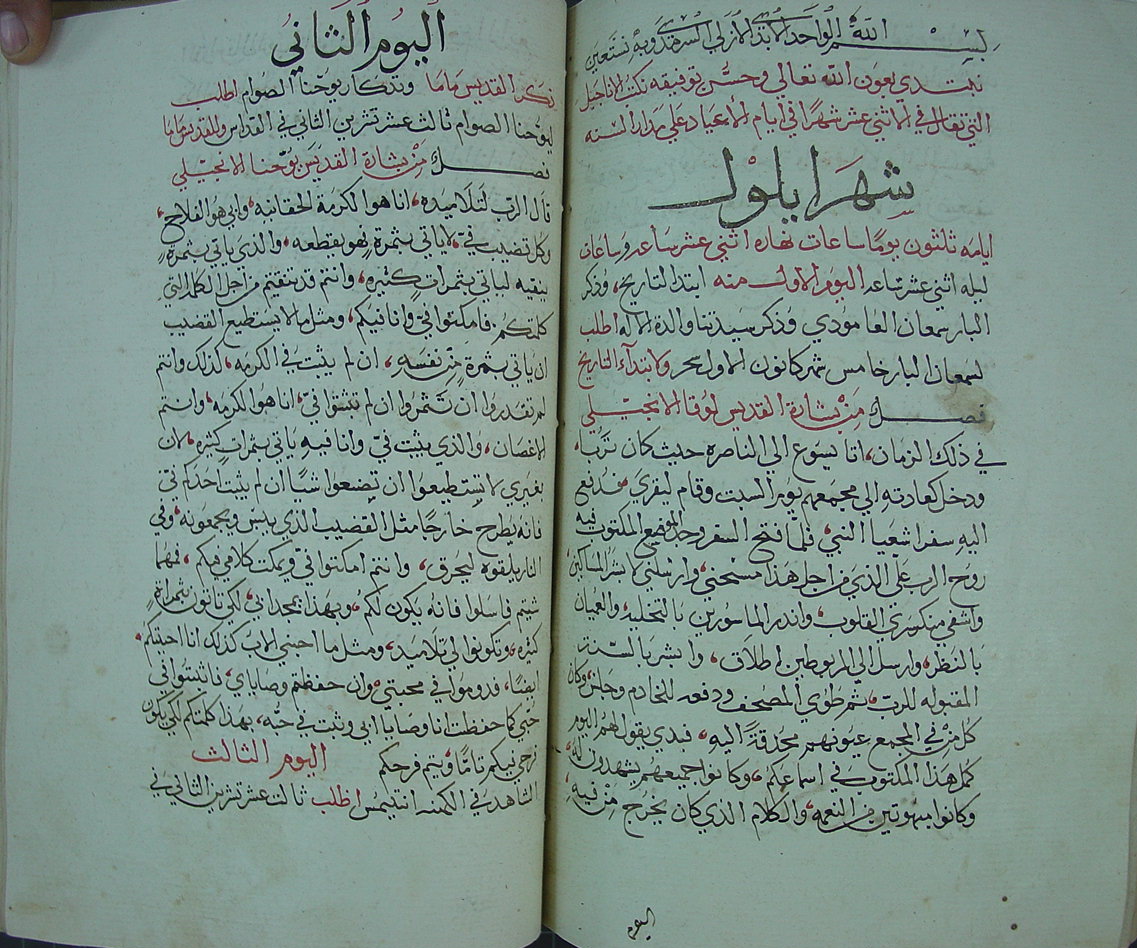 بسم الله الواحد الابدي الازلي السرمدي وبه نستعين
نبتدي بعون الله تعالي وحسن توفيقه نكتب الاناجيل
التي تقال في الاثني عشر شهرًا في ايام الاعياد علي مدار السنه
شهر ايلول
ايامه ثلثون يومًا ساعات نهاره اثني عشر ساعه وساعات
ليله اثني عشر ساعه اليوم الاول منه ابتدا التاريخ، وذكر
البار سمعان العامودي وذكر سيدتنا والدة الاله اطلب
لسمعان البار خامس شهر كانون الاول سحر ولابتدآء التاريخ
فصل من بشارة القديس لوقا الانجيلي
في ذلك الزمان، اتا يسوع الي الناصره حيث كان تربا،
ودخل كعادته الي مجمعهم يوم السبت وقام ليقري، فدفع
اليه سفر اشعيا النبي، فلما فتح السفر وجد الموضع المكتوب فيه
روح الرب علي الذي من اجل هذا مسحني، وارسلني لابشر المساكين
واشفي منكسري القلوب، واندر الماسورين بالتخليه، والعميان
بالنظر، وارسل الي المربوطين اطلاق، وابشر بالسنة
المقبوله للرب، ثم طوي المصحف ودفعه للخادم وجلس، وكان
كل من في المجمع عيونهم محدقةً اليه، فبدي يقول لهم اليوم
كمل هذا المكتوب في اسماعكم، وكانوا جميعهم يشهدون له،
وكانوا مبهوتين من النعمه، والكلام الذي كان يخرج من فيه،
اليوم
اليوم الثاني
ذكر القديس ماما وتذكار يوحنا الصوام اطلب
ليوحنا الصوام ثالث عشر تشرين الثاني في القداس وللقديس ماما
فصل من بشارة القديس يوحنا الانجيلي
قال الرب لتلاميذه، انا هوا الكرمة الحقانيه، وابي هو الفلاح،
وكل قضيب فيّ لا ياتي بثمرةٍ فهو يقطعه، والذي ياتي بثمرةٍ
ينقيه لياتي بثمرات كثيره، وانتم قد نقيتم من اجل الكلام التي
كلمتكم، فامكثوا فيّ وانا فيكم، ومثل ما لا يستطيع القضيب
ان ياتي بثمرة من نفسه، ان لم يثبت في الكرمه، كذلك وانتم
لم تقدروا ان تثمروا ان لم تثبتوا فيّ، انا هوا الكرمه، وانتم
الاغصان، والذي يثبت فيّ وانا فيه ياتي بثمراتٍ كثيره، لان
بغيري لا تستطيعوا ان تصنعوا شيًا ان لم يثبت احدكم فيّ
فانه يطرح خارجًا مثل القضيب الذي ييبس ويجمعونه، وفي
النار يلقوه ليحرق، وانتم امكثوا فيّ ويمكث كلامي فيكم، فمهما
شيتم فاسلوا فانه يكون لكم، وبهذا يمجد ابي، لكي تاتون بثمراةٍ
كثيره، وتكونوا لي تلاميد، ومثل ما احبني الاب كذلك انا احببتكم،
ايضًا، فدوموا في محبتي، وان حفظتم وصاياي، فاثبتوا في
حبّي كما حفظت انا وصايا ابي وثبت في حبّه، بهذا كلمتكم لكي يكون
فرحي فيكم تامًا، ويتم فرحكم اليوم الثالث
الشاهد في الكهنه انتيمس اطلب ثالث عشر تشرين الثاني في